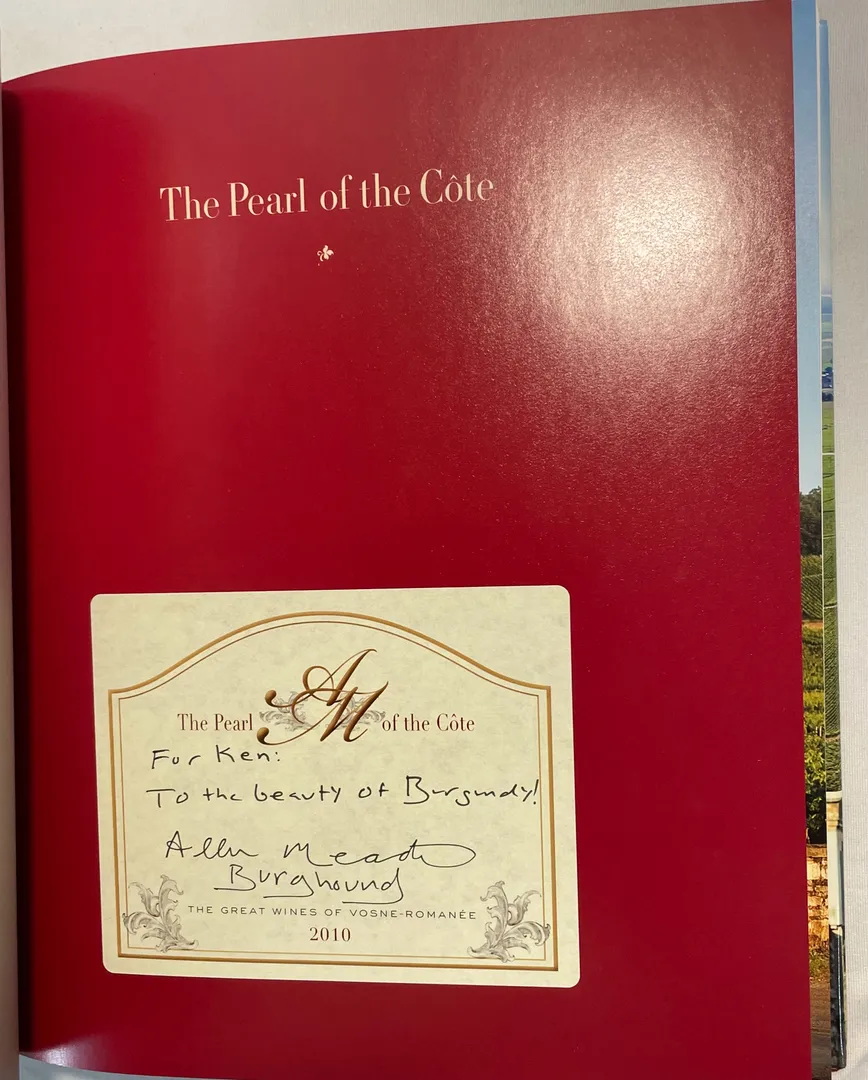 The Pearl of the Côte
AM
The Pearl of the Côte
For Ken:
To the beauty of Burgundy!
Allen Meadows
Burghound
THE GREAT WINES OF VOSNE-ROMANÉE
2010